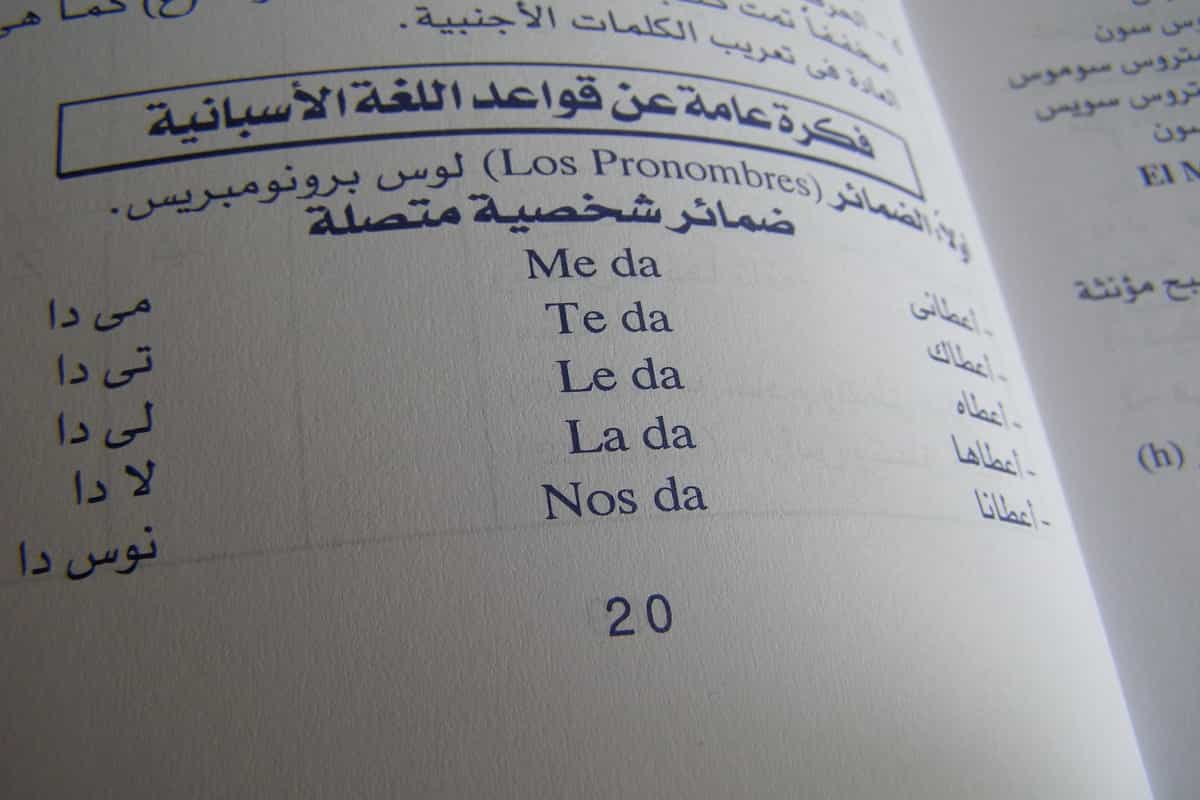 ٤ - الحرف
مخففاً تمت
العادة فى تعريب الكلمات الأجنبية.
فكرة عامة عن قواعد اللغة الأسبانية
أولاً: الضمائر (Los Pronombres) لوس برونومبريس.
ضمائر شخصية متصلة
- أعطانى Me da مى دا
- أعطاك Te da تى دا
- أعطاه Le da لى دا
- أعطاها La da لا دا
- أعطانا Nos da نوس دا
20
سون
سوموس
سويس
سون
El
مؤنثة
(h)